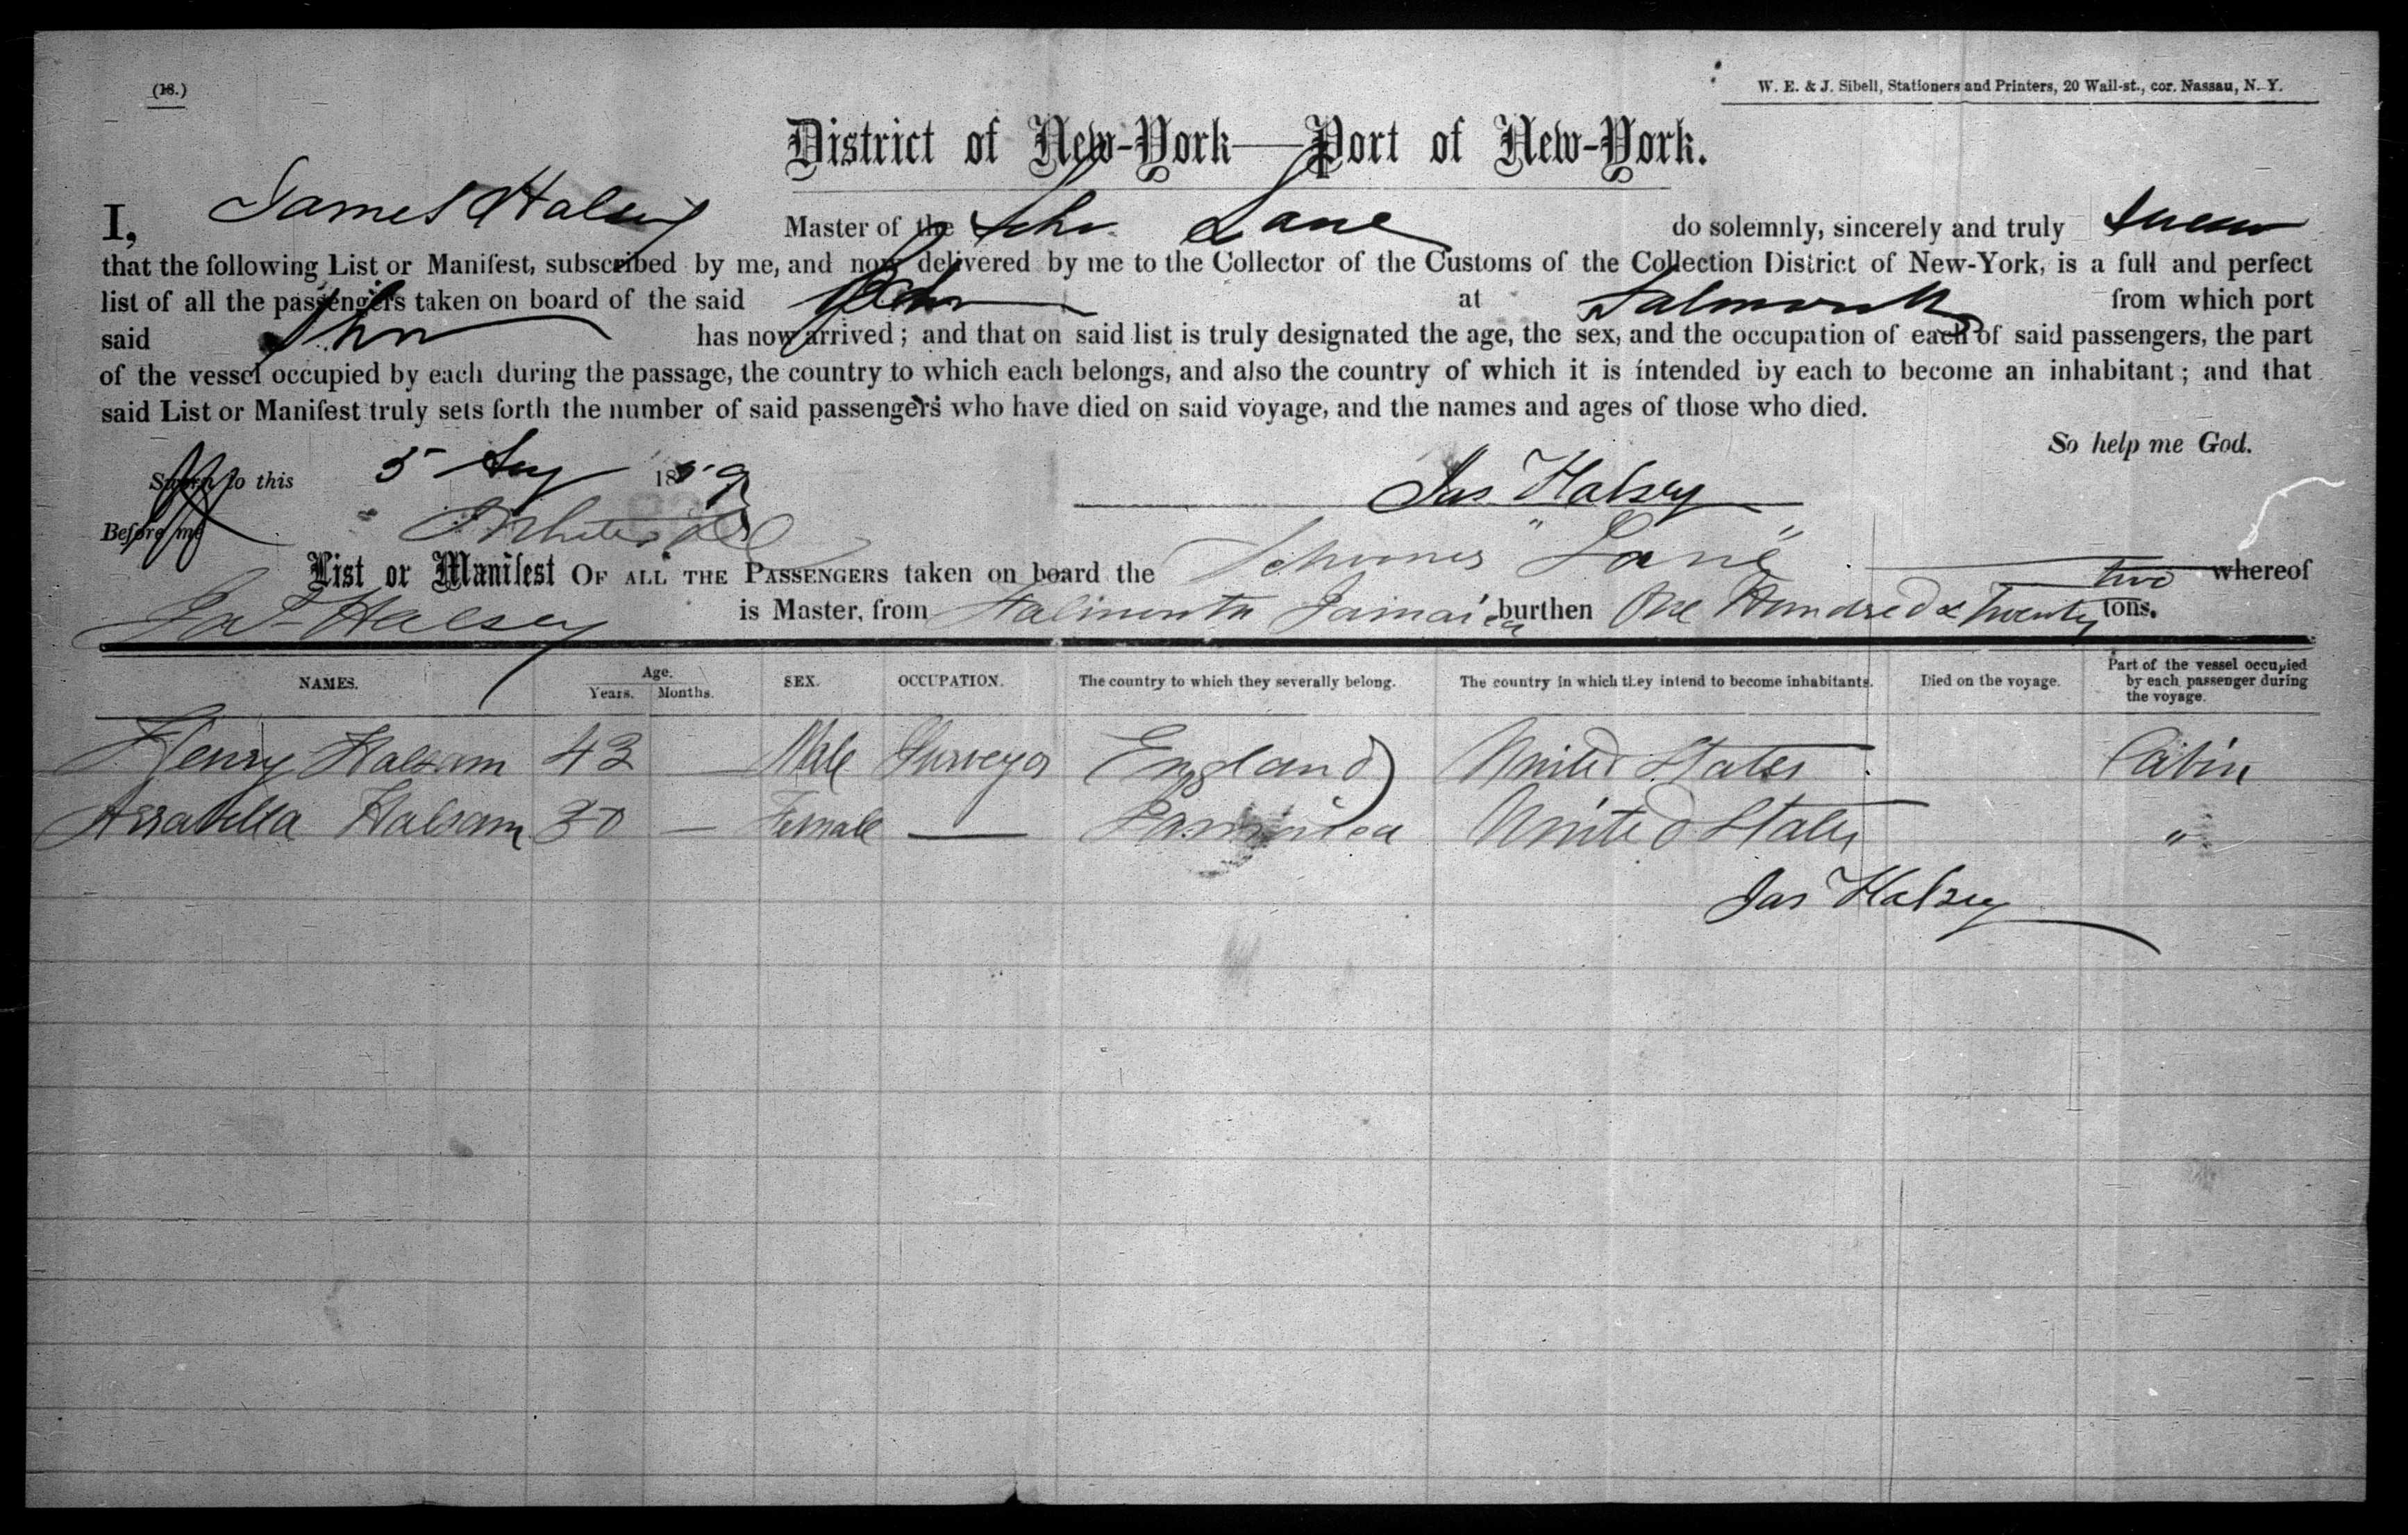 (18.)
W. E. & J. Sibell, Stationers and Printers, 20 Wall-st., cor. Nassau, N. Y.
District of New-York—Port of New-York.
I, James Halsey Master of the Schr Lane do solemnly, sincerely and truly swear
that the following List or Manifest, subscribed by me, and now delivered by me to the Collector of the Customs of the Collection District of New-York, is a full and perfect
list of all the passengers taken on board of the said Schr at Falmouth from which port
said Schr has now arrived; and that on said list is truly designated the age, the sex, and the occupation of each of said passengers, the part
of the vessel occupied by each during the passage, the country to which each belongs, and also the country of which it is intended by each to become an inhabitant; and that
said List or Manifest truly sets forth the number of said passengers who have died on said voyage, and the names and ages of those who died.
So help me God.
Sworn to this 5 Aug 1859
Jas Halsey
Before me
List or Manifest OF ALL THE PASSENGERS taken on board the Schooner "Lane" whereof
Jas Halsey is Master, from Falmouth Jamaica burthen One Hundred & Twenty two tons.
NAMES. Age. Years. Months. SEX. OCCUPATION. The country to which they severally belong. The country in which they intend to become inhabitants. Died on the voyage. Part of the vessel occupied by each passenger during the voyage.
Henry Halsam 43 — Male Surveyor England United States Cabin
Arrabella Halsam 30 — Female — Jamaica United States "
Jas Halsey